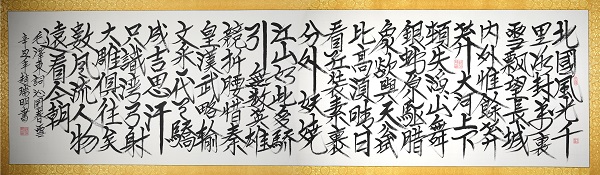 北國風光千
里冰封萬裏
雪飄望長城
内外惟餘莽
莽大河上下
頓失滔滔山舞
銀蛇原馳蠟
象欲與天公試
比高須晴日
看紅裝素裹
分外妖嬈
江山如此多驕
引無數英雄
競折腰惜秦
皇漢武略輸
文采一代天驕
成吉思汗
只識彎弓射
大雕俱往矣
數風流人物
還看今朝
毛澤東詞沁園春雪
辛丑年趙瑞明書